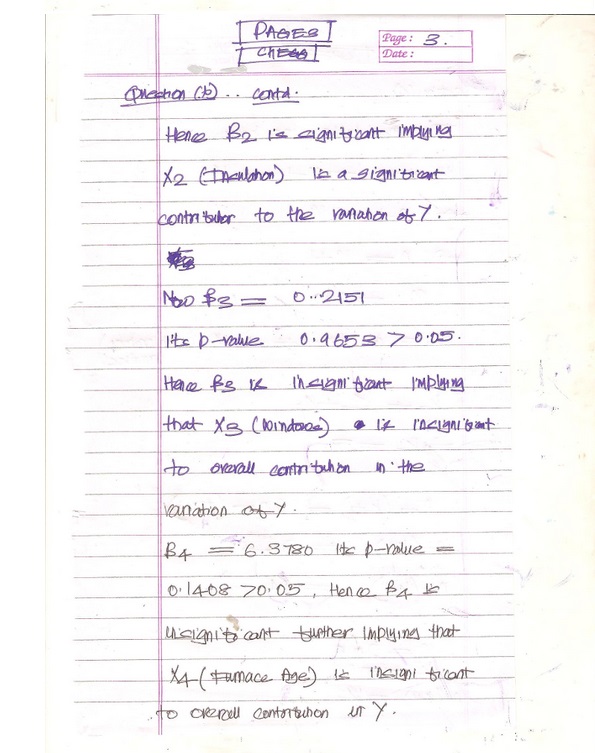 PAGES
CHEGG
Page: 3.
Date:
Question (b) .. contd.
Hence β2 is significant implying
X2 (Insulation) is a significant
contributor to the variation of Y.
Now β3 = 0..2151
Its p-value 0.9653 > 0.05.
Hence β3 is insignificant implying
that X3 (Windows) is insignificant
to overall contribution in the
variation of Y.
β4 = 6.3780 Its p-value =
0.1408 > 0.05, Hence β4 is
insignificant further implying that
X4 (Furnace Age) is insignificant
to overall contribution in Y.